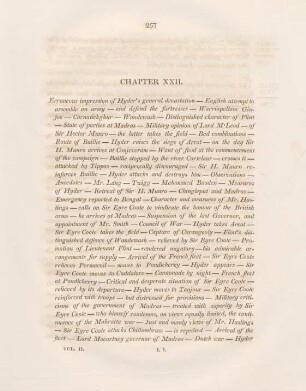 257
CHAPTER XXII.
Erroneous impression of Hyder's general devastation — English attempt to
assemble an army — and defend the fortresses — Warriapollam Gin-
jee — Carnatickghur — Wandewash — Distinguished character of Flint
— State of parties at Madras — Military opinion of Lord M'Leod — of
Sir Hector Munro — the latter takes the field — Bad combinations —
Route of Baillie — Hyder raises the siege of Arcot — on the day Sir
H. Munro arrives at Conjeveram — Want of food at the commencement
of the campaign — Baillie stopped by the river Cortelaur — crosses it —
attacked by Tippoo — reciprocally discouraged — Sir H. Munro re-
inforces Baillie — Hyder attacks and destroys him — Observations —
Anecdotes — Mr. Lang — Tuigg — Mohammed Booden — Measures
of Hyder — Retreat of Sir H. Munro — Chingleput and Madras —
Emergency reported to Bengal — Character and measures of Mr. Has-
tings — calls on Sir Eyre Coote to vindicate the honour of the British
arms — he arrives at Madras — Suspension of the last Governor, and
appointment of Mr. Smith — Council of War — Hyder takes Arcot —
Sir Eyre Coote takes the field — Capture of Carangooly — Flint's dis-
tinguished defence of Wandewash — relieved by Sir Eyre Coote — Pro-
motion of Lieutenant Flint — rendered nugatory — his admirable ar-
rangements for supply — Arrival of the French fleet — Sir Eyre Coote
relieves Permacoil — moves to Pondicherry — Hyder appears —
Sir Eyre Coote moves to Cuddalore — Cannonade by night — French fleet
at Pondicherry — Critical and desperate situation of Sir Eyre Coote
relieved by its departure — Hyder moves to Tanjour — Sir Eyre Coote
reinforced with troops — but distressed for provisions — Military criti-
cisms of the government of Madras — treated with asperity by Sir
Eyre Coote — who himself condemns, on views equally limited, the conti-
nuance of the Mahratta war — Just and manly views of Mr. Hastings
— Sir Eyre Coote attacks Chillumbrum — is repulsed — Arrival of the
fleet — Lord Macartney governor of Madras — Dutch war — Hyder
VOL. II. L L